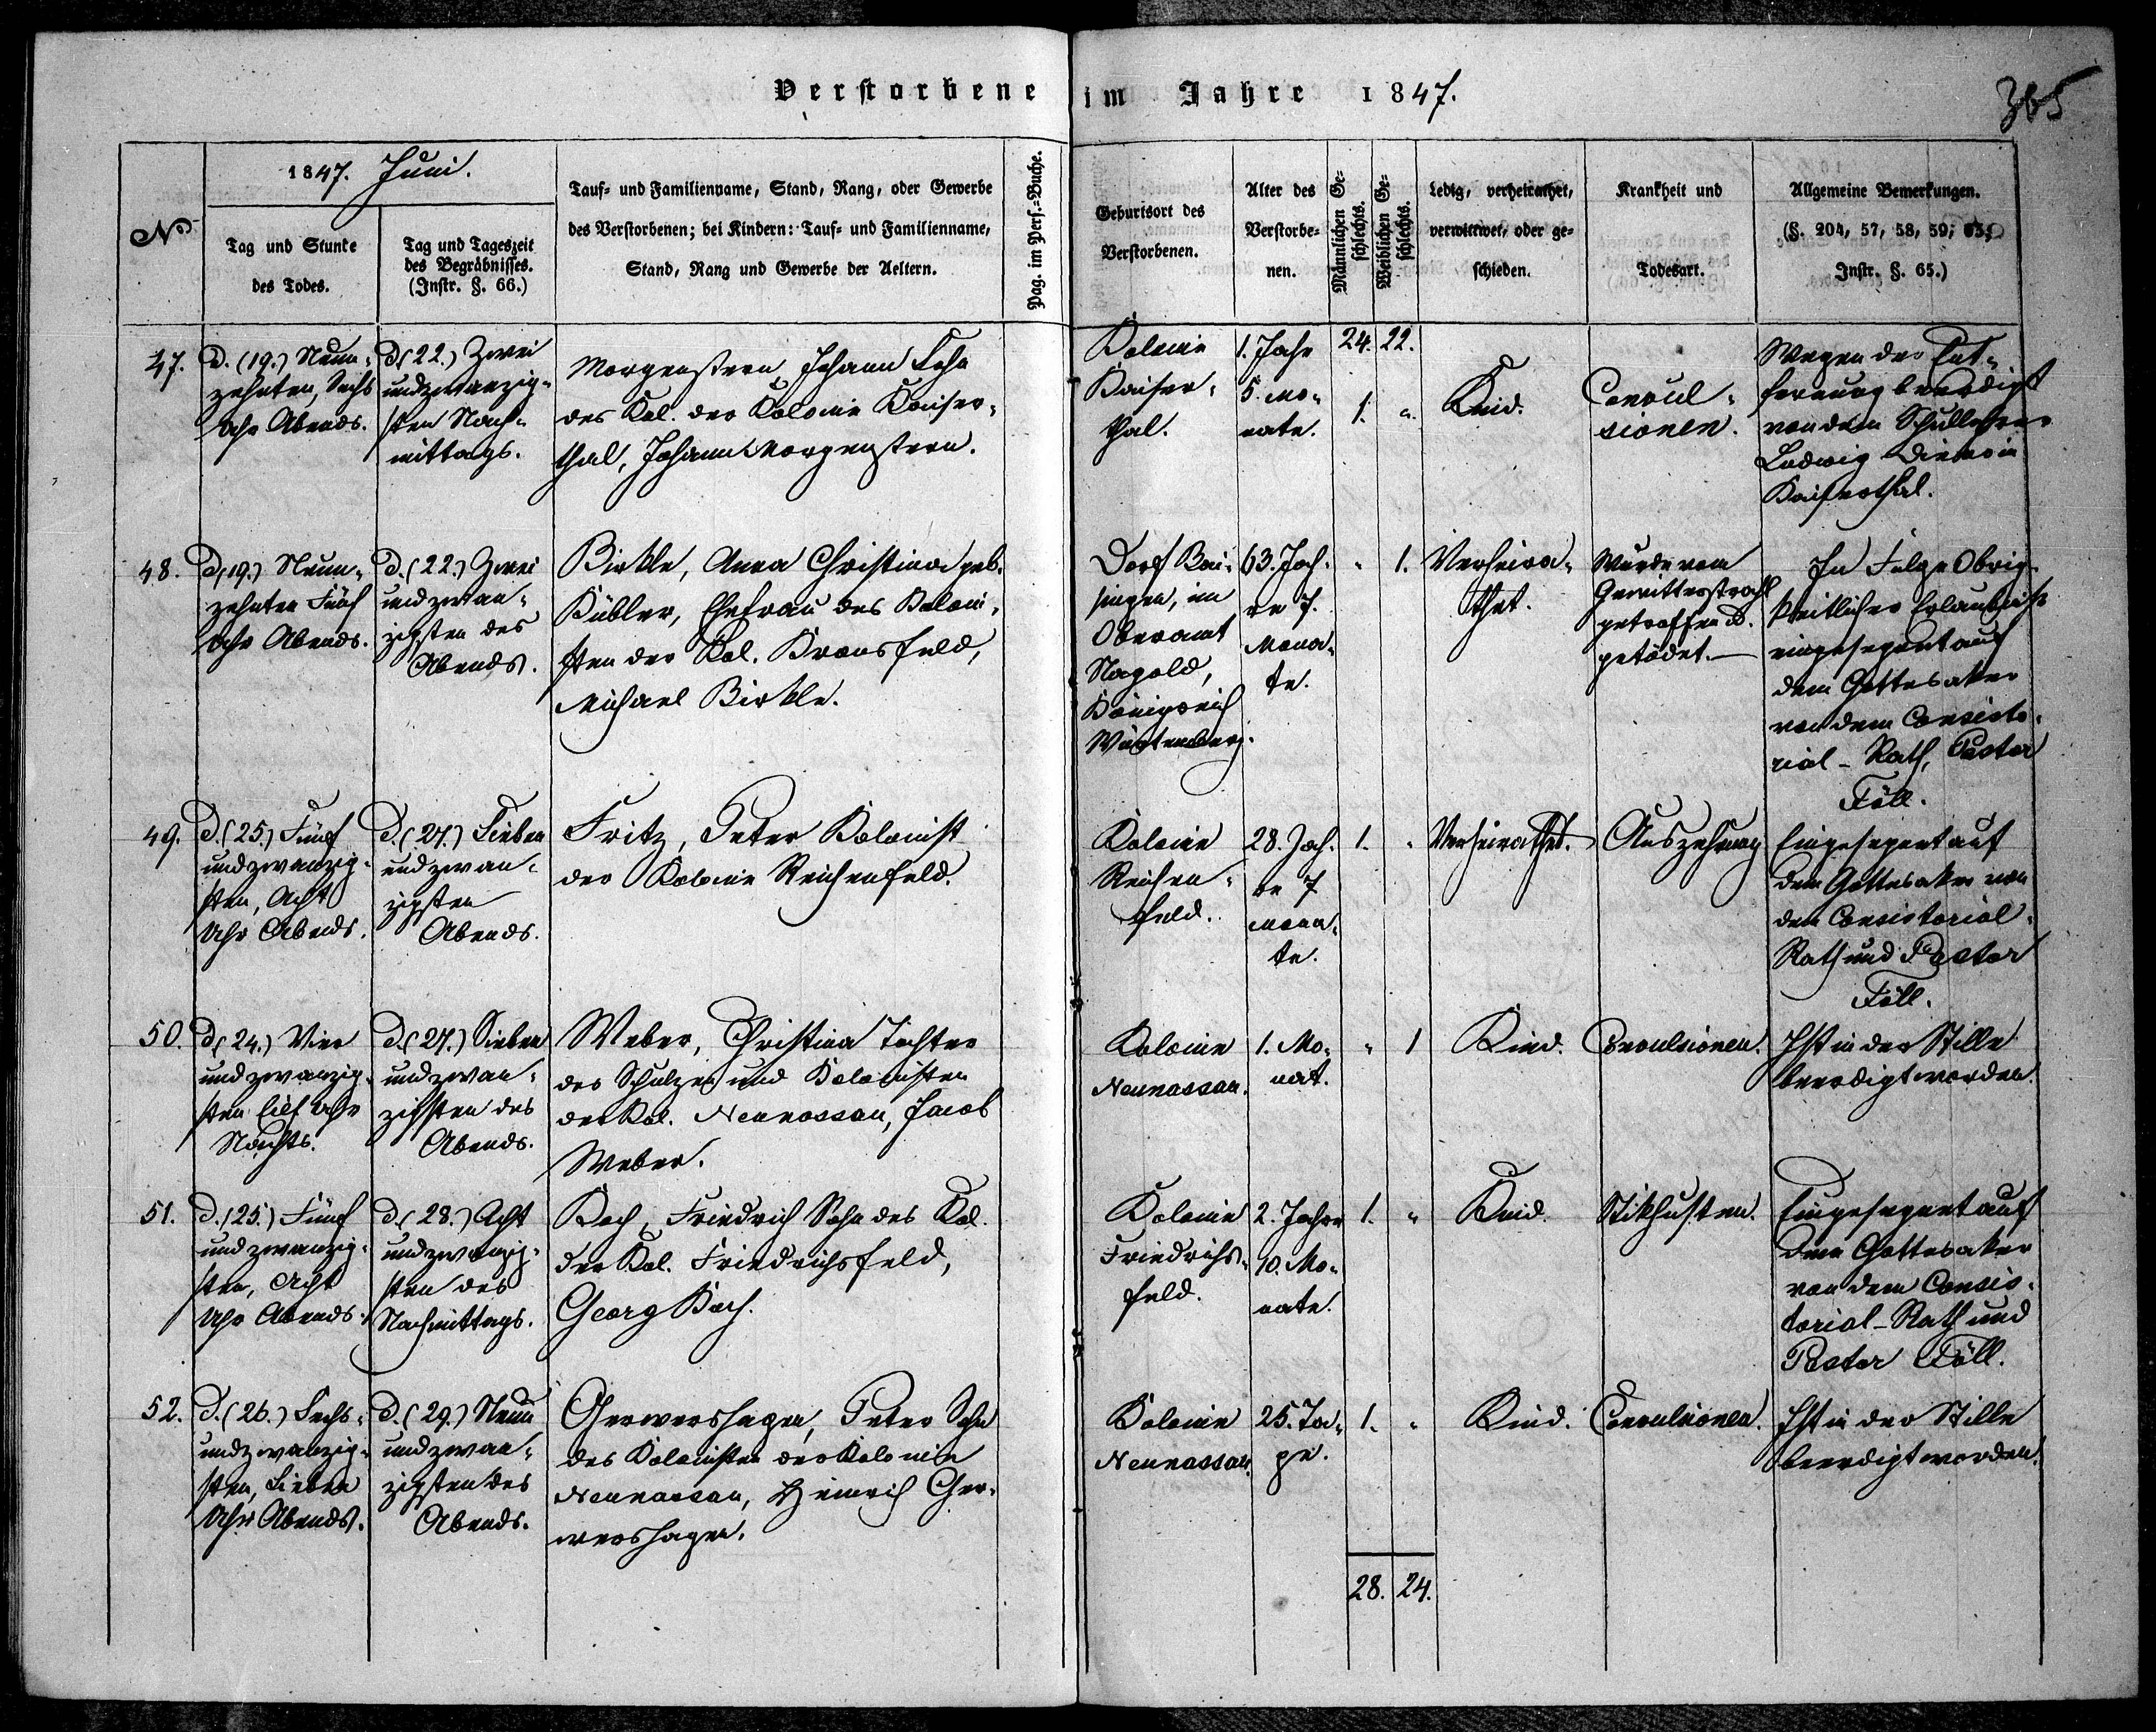 Verstorbene im Jahre 1847.
365
No
1847. Juni.
Tag und Stunde
des Todes.
Tag und Tageszeit
des Begräbnisses.
(Instr. §. 66.)
Tauf- und Familienname, Stand, Rang, oder Gewerbe
des Verstorbenen; bei Kindern: Tauf- und Familienname,
Stand, Rang und Gewerbe der Aeltern.
Pag. im Pers.-Buche.
Geburtsort des
Verstorbenen.
Alter des
Verstorbe-
nen.
Männlichen Ge-
schlechts.
Weiblichen Ge-
schlechts.
Ledig, verheirathet,
verwittwet, oder ge-
schieden.
Krankheit und
Todesart.
Allgemeine Bemerkungen.
(§. 204, 57, 58, 59,
Instr. §. 65.)
47.
D. (19.) Neun-
zehnten, Sechs
Uhr Abends.
D (22.) Zwei
undzwanzig-
sten Nach-
mittags.
Morgenstern, Johann Sohn
des Kol. der Kolonie Kaiser-
thal, Johann Morgenstern.
Kolonie
Kaiser-
thal.
1. Jahr
5. Mo-
nate.
24. 22.
1. "
Kind.
Convul-
sionen.
Wegen der Ent-
fernung beerdigt
von dem Schullehrer
Ludwig
Kaiserthal.
48.
D. (19.) Neun-
zehnten Fünf
Uhr Abends.
D. (22.) Zwei
undzwan-
zigsten des
Abends.
Birkle, Anna Christina geb.
Kübler, Ehefrau des Koloni-
sten der Kol. Kronsfeld,
Michael Birkle.
Dorf Bai-
singen, im
Oberamt
Nagold,
Königreich
Würtemberg.
63. Jah-
re 7.
Mona-
te.
" 1.
Verheira-
thet.
Wurde vom
Gewitterstrahl
getroffen u.
getödet.—
In Folge Obrig-
keitlicher Erlaubniß
eingesegnet auf
dem Gottesaker
von dem Consisto-
rial-Rath, Pastor
Föll.
49.
D. (25.) Fünf
undzwanzig-
sten, Acht
Uhr Abends.
D. (27.) Sieben
undzwan-
zigsten
Abends.
Fritz, Peter Kolonist
der Kolonie Reichenfeld.
Kolonie
Reichen-
feld.
28. Jah-
re 7
Mona-
te.
1. "
Verheirathet.
Auszehrung
Eingesegnet auf
dem Gottesaker von
dem Consistorial-
Rath und Pastor
Föll.
50.
D. (24.) Vier
undzwanzig-
sten Eilf Uhr
Nachts.
D. (27.) Sieben
undzwan-
zigsten des
Abends.
Weber, Christina Tochter
des Schulzen und Kolonisten
der Kol. Neunassau, Jacob
Weber.
Kolonie
Neunassau.
1. Mo-
nat.
" 1
Kind.
Convulsionen.
Ist in der Stille
beerdigt worden.
51.
D. (25.) Fünf
undzwanzig-
sten, Acht
Uhr Abends.
D. (28.) Acht
undzwanzig-
sten des
Nachmittags.
Koch, Friedrich Sohn des Kol.
der Kol. Friedrichsfeld,
Georg Koch.
Kolonie
Friedrichs-
feld.
2. Jahre
10. Mo-
nate.
1. "
Kind.
Stikhusten.
Eingesegnet auf
dem Gottesaker
von dem Consis-
torial-Rath und
Pastor Föll.
52.
D. (26.) Sechs-
undzwanzig-
sten, Sieben
Uhr Abends.
D. (29.) Neun
undzwan-
zigsten des
Abends.
Gerwershagen, Peter Sohn
des Kolonisten der Kolonie
Neunassau, Heinrich Ger-
wershagen.
Kolonie
Neunassau.
25. Ta-
ge.
1. "
Kind.
Convulsionen.
Ist in der Stille
beerdigt worden.
28. 24.